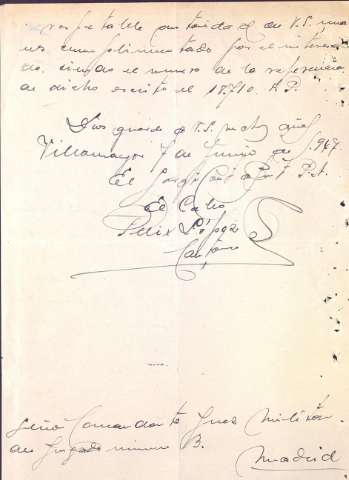 respetable autoridad de V.S. una
vez cumplimentado por el interesa
do, siendo el numero de la referencia
de dicho escrito el 17.710. A.P.
Dios guarde a V.S. muchos años
Villamayor 7 de Junio de 1.947
El
El Cabo
Felix López
Señor Comandante Juez Militar
del Juzgado numero B.
Madrid